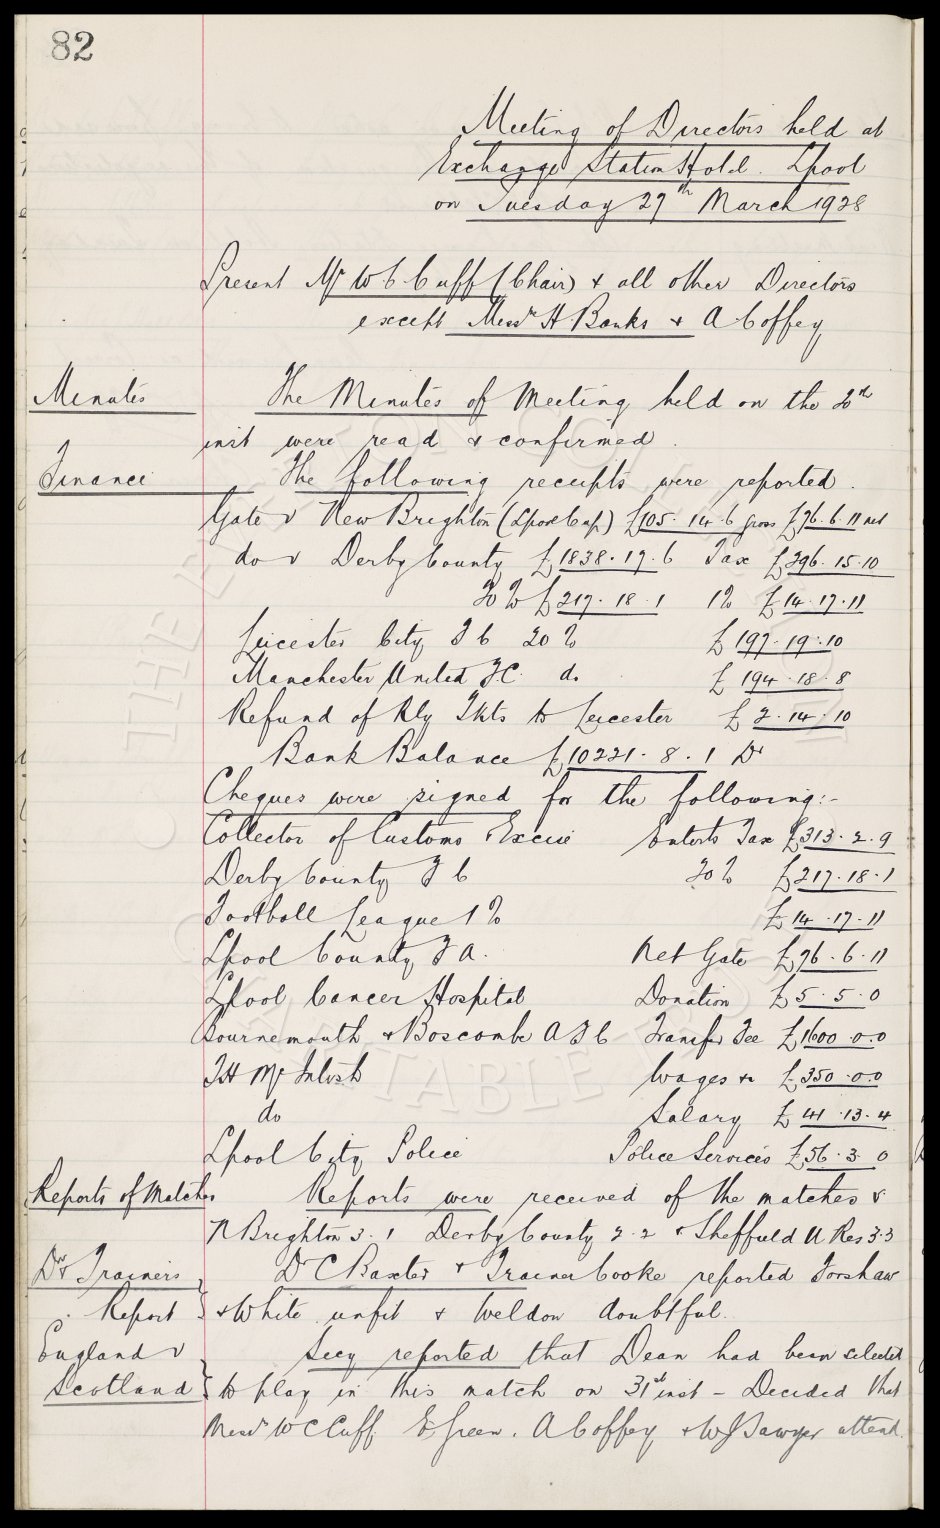 82
Meeting of Directors held at
Exchange Station Hotel. Lpool
on Tuesday 27th March 1928
Present Mr W C Cuff (Chair) & all other Directors
except Messrs H. Banks & A Coffey
Minutes The Minutes of Meeting held on the 20th
inst were read & confirmed.
Finance The following receipts were reported.
Gate v New Brighton (Lpool Cup) £105. 14. 6 gross £76. 6. 11 net
do v Derby County £1838. 17. 6 Tax £296. 15. 10
20% £217. 18. 1 1% £14. 17. 11
Leicester City F C 20% £197. 19. 10
Manchester United F.C. do £194. 18. 8
Refund of Rly Tkts to Leicester £2. 14. 10
Bank Balance £10221. 8. 1 Dr
Cheques were signed for the following:-
Collector of Customs & Excise Enterts Tax £313. 2. 9
Derby County F C 20% £217. 18. 1
Football League 1% £14. 17. 11
Lpool County F A. Net Gate £76. 6. 11
Lpool Cancer Hospital Donation £5. 5. 0
Bournemouth & Boscombe A F C Transfer Fee £1600. 0. 0
T H McIntosh Wages &c £350. 0. 0
do Salary £41. 13. 4
Lpool City Police Police Services £56. 3. 0
Reports of Matches Reports were received of the matches v
N Brighton 3. 1 Derby County 2. 2 & Sheffield U Res 3.3
Dr & Trainers Dr C Baxter & Trainer Cooke reported Forshaw
Report & White unfit & Weldon doubtful.
England v Secy reported that Dean had been selected
Scotland to play in this match on 31st inst – Decided that
Messrs W C Cuff E Green. A Coffey & W J Sawyer attend.
THE EVERTON COLLECTION
CHARITABLE TRUST